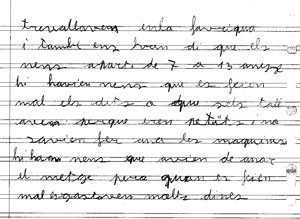 trevallaven enla favriqua
i tambe ens van di que els
nens aparti de 7 a 13 anys
hi havien nens que es feien
mal els dits o que sels tall
aven perque eren petits i no
savien fer anar les maquines
hi havia nens que avien de anar
el metge pero quan es feien
mal es gastaven molts dines